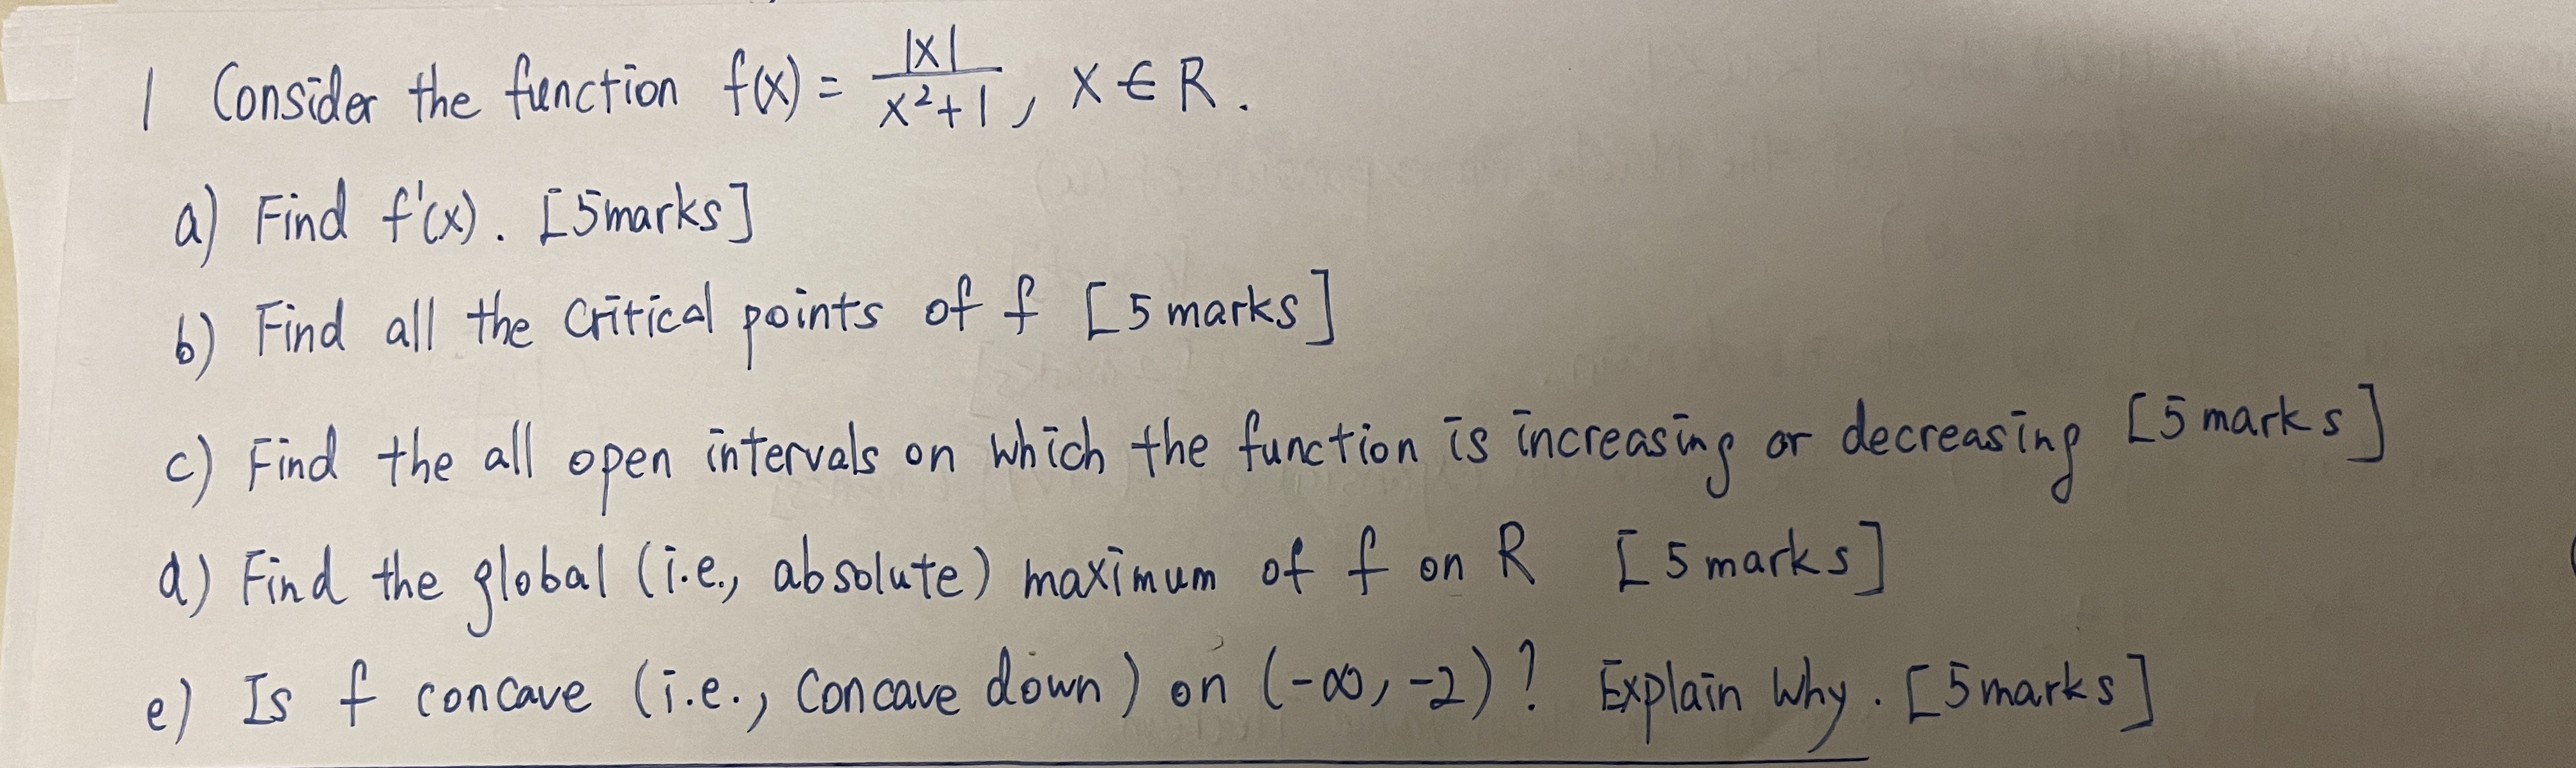 1 Consider the function f(x) = |x| / x²+1, x ∈ R.
a) Find f'(x). [5marks]
b) Find all the critical points of f [5 marks]
c) Find the all open intervals on which the function is increasing or decreasing [5 marks]
d) Find the global (i.e., absolute) maximum of f on R [5 marks]
e) Is f concave (i.e., concave down) on (-∞, -2)? Explain why. [5marks]